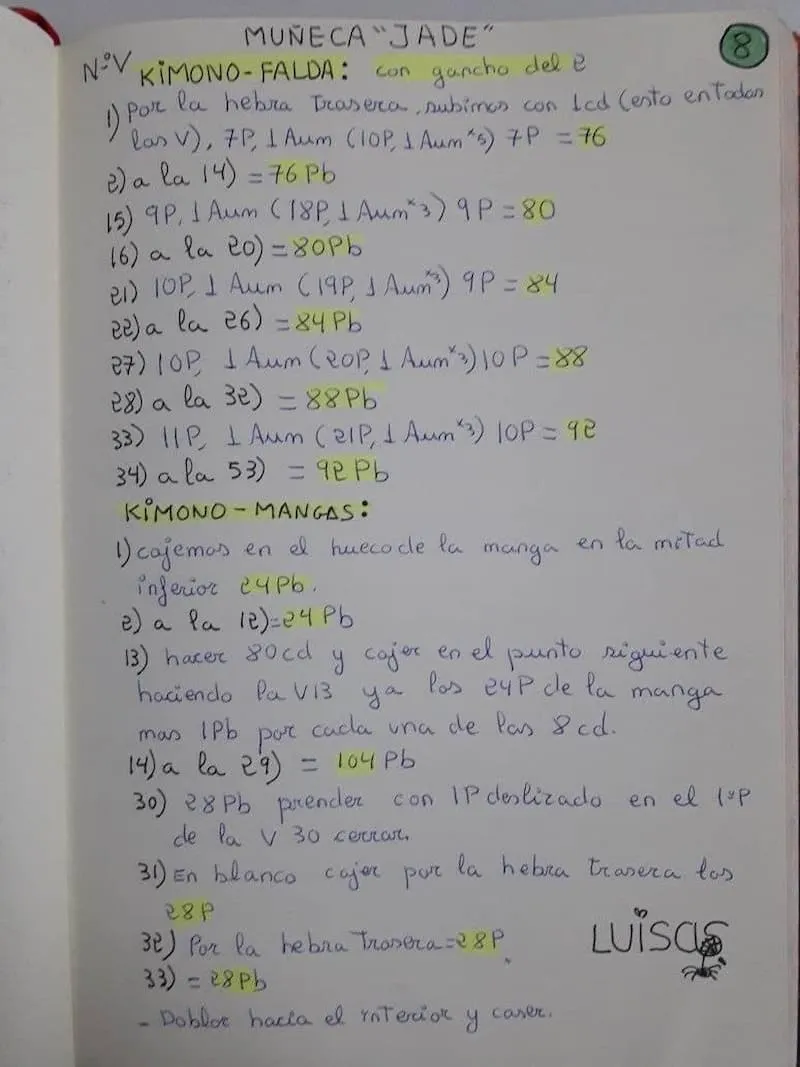 MUÑECA "JADE"
8
NºV KIMONO-FALDA: con gancho del 2
1) Por la hebra trasera, subimos con 1cd (esto en Todas
las V), 7P, 1 Aum (10P, 1 Aum*5) 7P = 76
2) a la 14) = 76 Pb
15) 9P, 1 Aum (18P, 1 Aum*3) 9P = 80
16) a la 20) = 80Pb
21) 10P, 1 Aum (19P, 1 Aum*3) 9P = 84
22) a la 26) = 84 Pb
27) 10P, 1 Aum (20P, 1 Aum*3) 10P = 88
28) a la 32) = 88Pb
33) 11P, 1 Aum (21P, 1 Aum*3) 10P = 92
34) a la 53) = 92 Pb
KIMONO-MANGAS:
1) cojemos en el hueco de la manga en la mitad
inferior 24Pb.
2) a la 12)=24 Pb
13) hacer 80cd y cojer en el punto siguiente
haciendo la V13 ya los 24P de la manga
mas 1Pb por cada una de las 8cd.
14) a la 29) = 104 Pb
30) 28Pb prender con 1P deslizado en el 1ºP
de la V 30 cerrar.
31) En blanco cojer por la hebra trasera los
28P
32) Por la hebra Trasera=28P.
33) = 28Pb
- Doblar hacia el interior y coser.
LUISAS